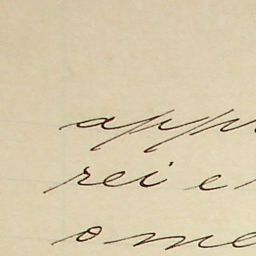 app
rei e
ome